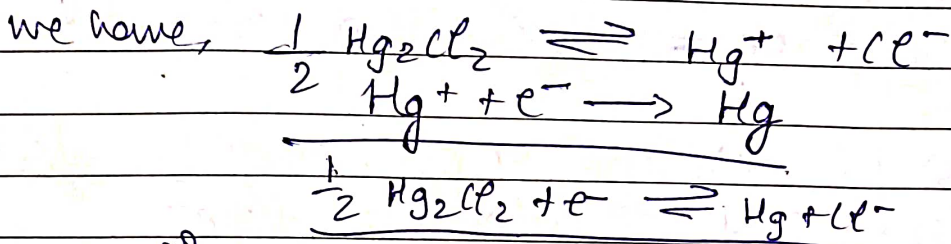 we have, 1/2 Hg₂Cl₂ ⇌ Hg⁺ + Cl⁻
Hg⁺ + e⁻ → Hg
1/2 Hg₂Cl₂ + e⁻ ⇌ Hg + Cl⁻